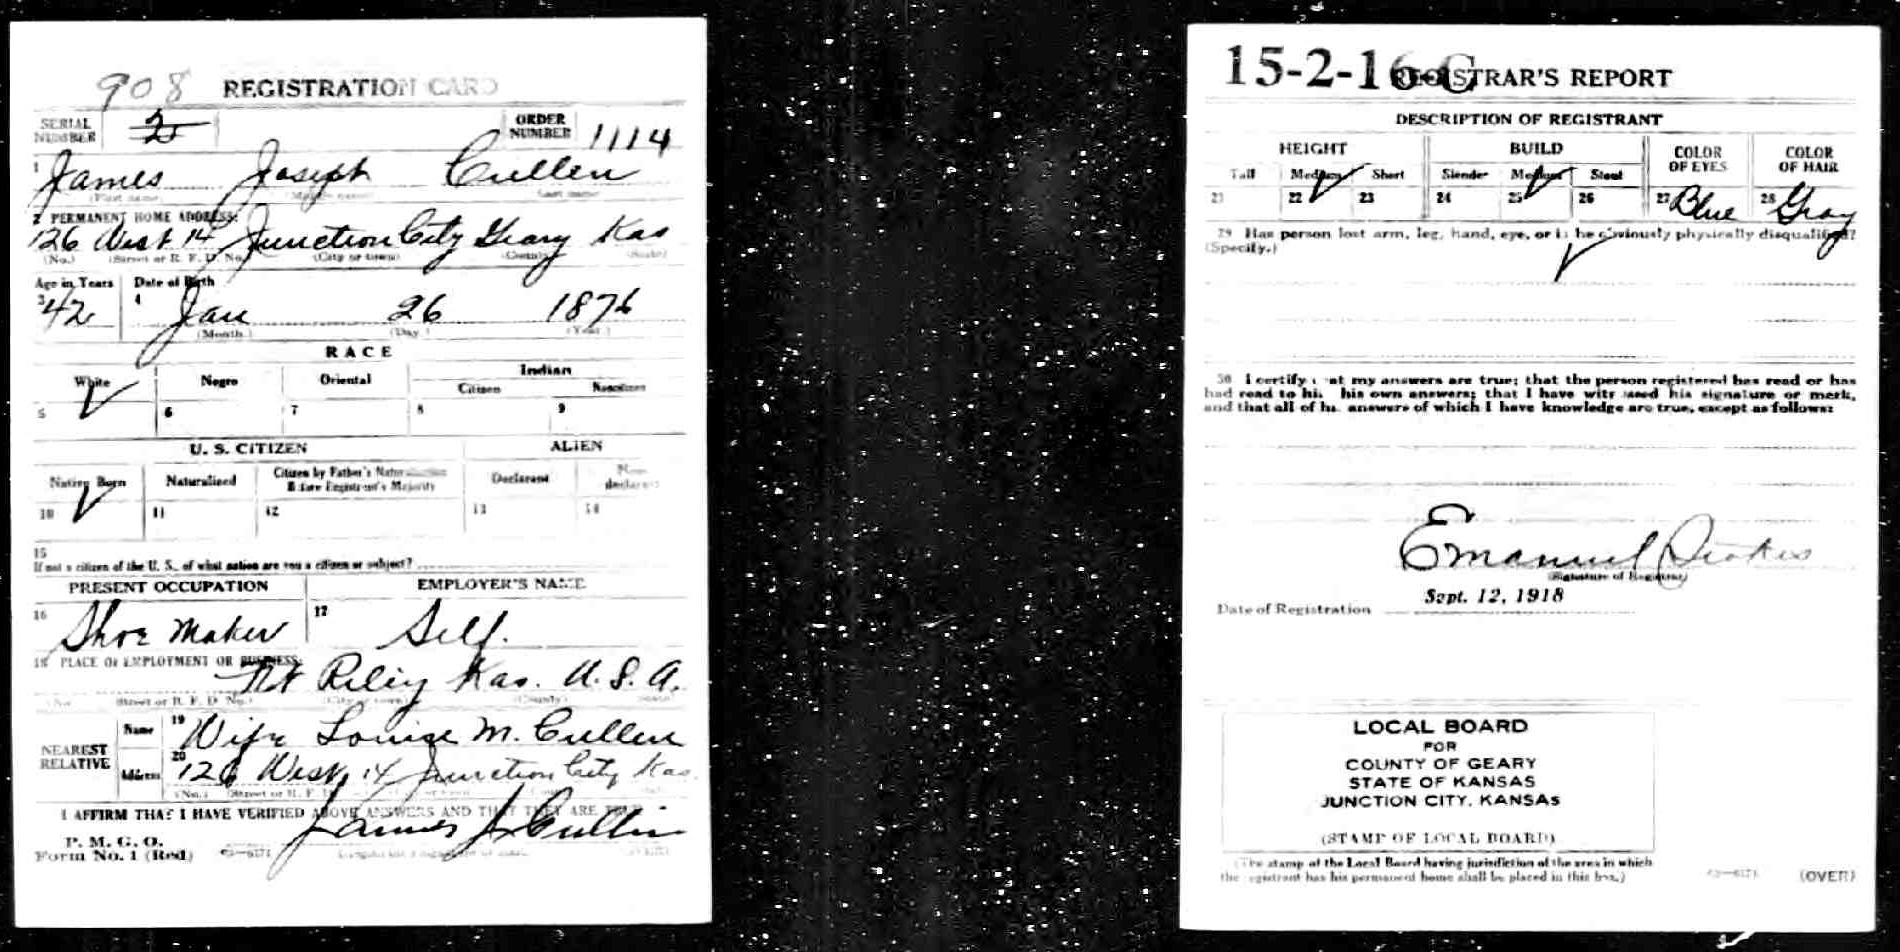 908 REGISTRATION CARD
SERIAL NUMBER 2 ORDER NUMBER 1114
1 James Joseph Cullen
(First name) (Middle name) (Last name)
2 PERMANENT HOME ADDRESS:
126 West 14 Junction City Geary Kas
(No.) (Street or R. F. D. No.) (City or town) (County) (State)
Age in Years Date of Birth
3 42 4 Jan 26 1876
(Month.) (Day.) (Year.)
RACE
White Negro Oriental Indian
Citizen Noncitizen
5 ✓ 6 7 8 9
U. S. CITIZEN ALIEN
Native Born Naturalized Citizen by Father's Naturalization Before Registrant's Majority Declarant Non-declarant
10 ✓ 11 12 13 14
15
If not a citizen of the U. S., of what nation are you a citizen or subject?
PRESENT OCCUPATION EMPLOYER'S NAME
16 Shoe Maker 17 Self.
18 PLACE OF EMPLOYMENT OR BUSINESS:
Ft Riley Kas. U.S.A.
(No.) (Street or R. F. D. No.) (City or town) (County) (State)
NEAREST RELATIVE
Name 19 Wife Louise M. Cullen
Address 20 126 West 14 Junction City Kas.
(No.) (Street or R. F. D. No.)
I AFFIRM THAT I HAVE VERIFIED ABOVE ANSWERS AND THAT THEY ARE TRUE
P. M. G. O.
Form No. 1 (Red) James J. Cullen
15-2-16-C REGISTRAR'S REPORT
DESCRIPTION OF REGISTRANT
HEIGHT BUILD COLOR OF EYES COLOR OF HAIR
Tall Medium Short Slender Medium Stout
21 22 ✓ 23 24 25 ✓ 26 27 Blue 28 Gray
29 Has person lost arm, leg, hand, eye, or is he obviously physically disqualified?
(Specify.) ✓
30 I certify that my answers are true; that the person registered has read or has
had read to him his own answers; that I have witnessed his signature or mark,
and that all of his answers of which I have knowledge are true, except as follows:
Emanuel
(Signature of Registrar)
Date of Registration Sept. 12, 1918
LOCAL BOARD
FOR
COUNTY OF GEARY
STATE OF KANSAS
JUNCTION CITY, KANSAS
(STAMP OF LOCAL BOARD)
(The stamp of the Local Board having jurisdiction of the area in which
the registrant has his permanent home shall be placed in this box.)
(OVER)